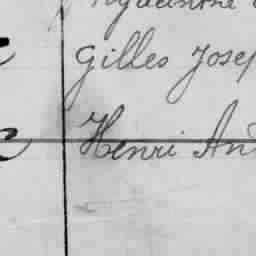 Hyacinthe
Gilles Josep
Henri An